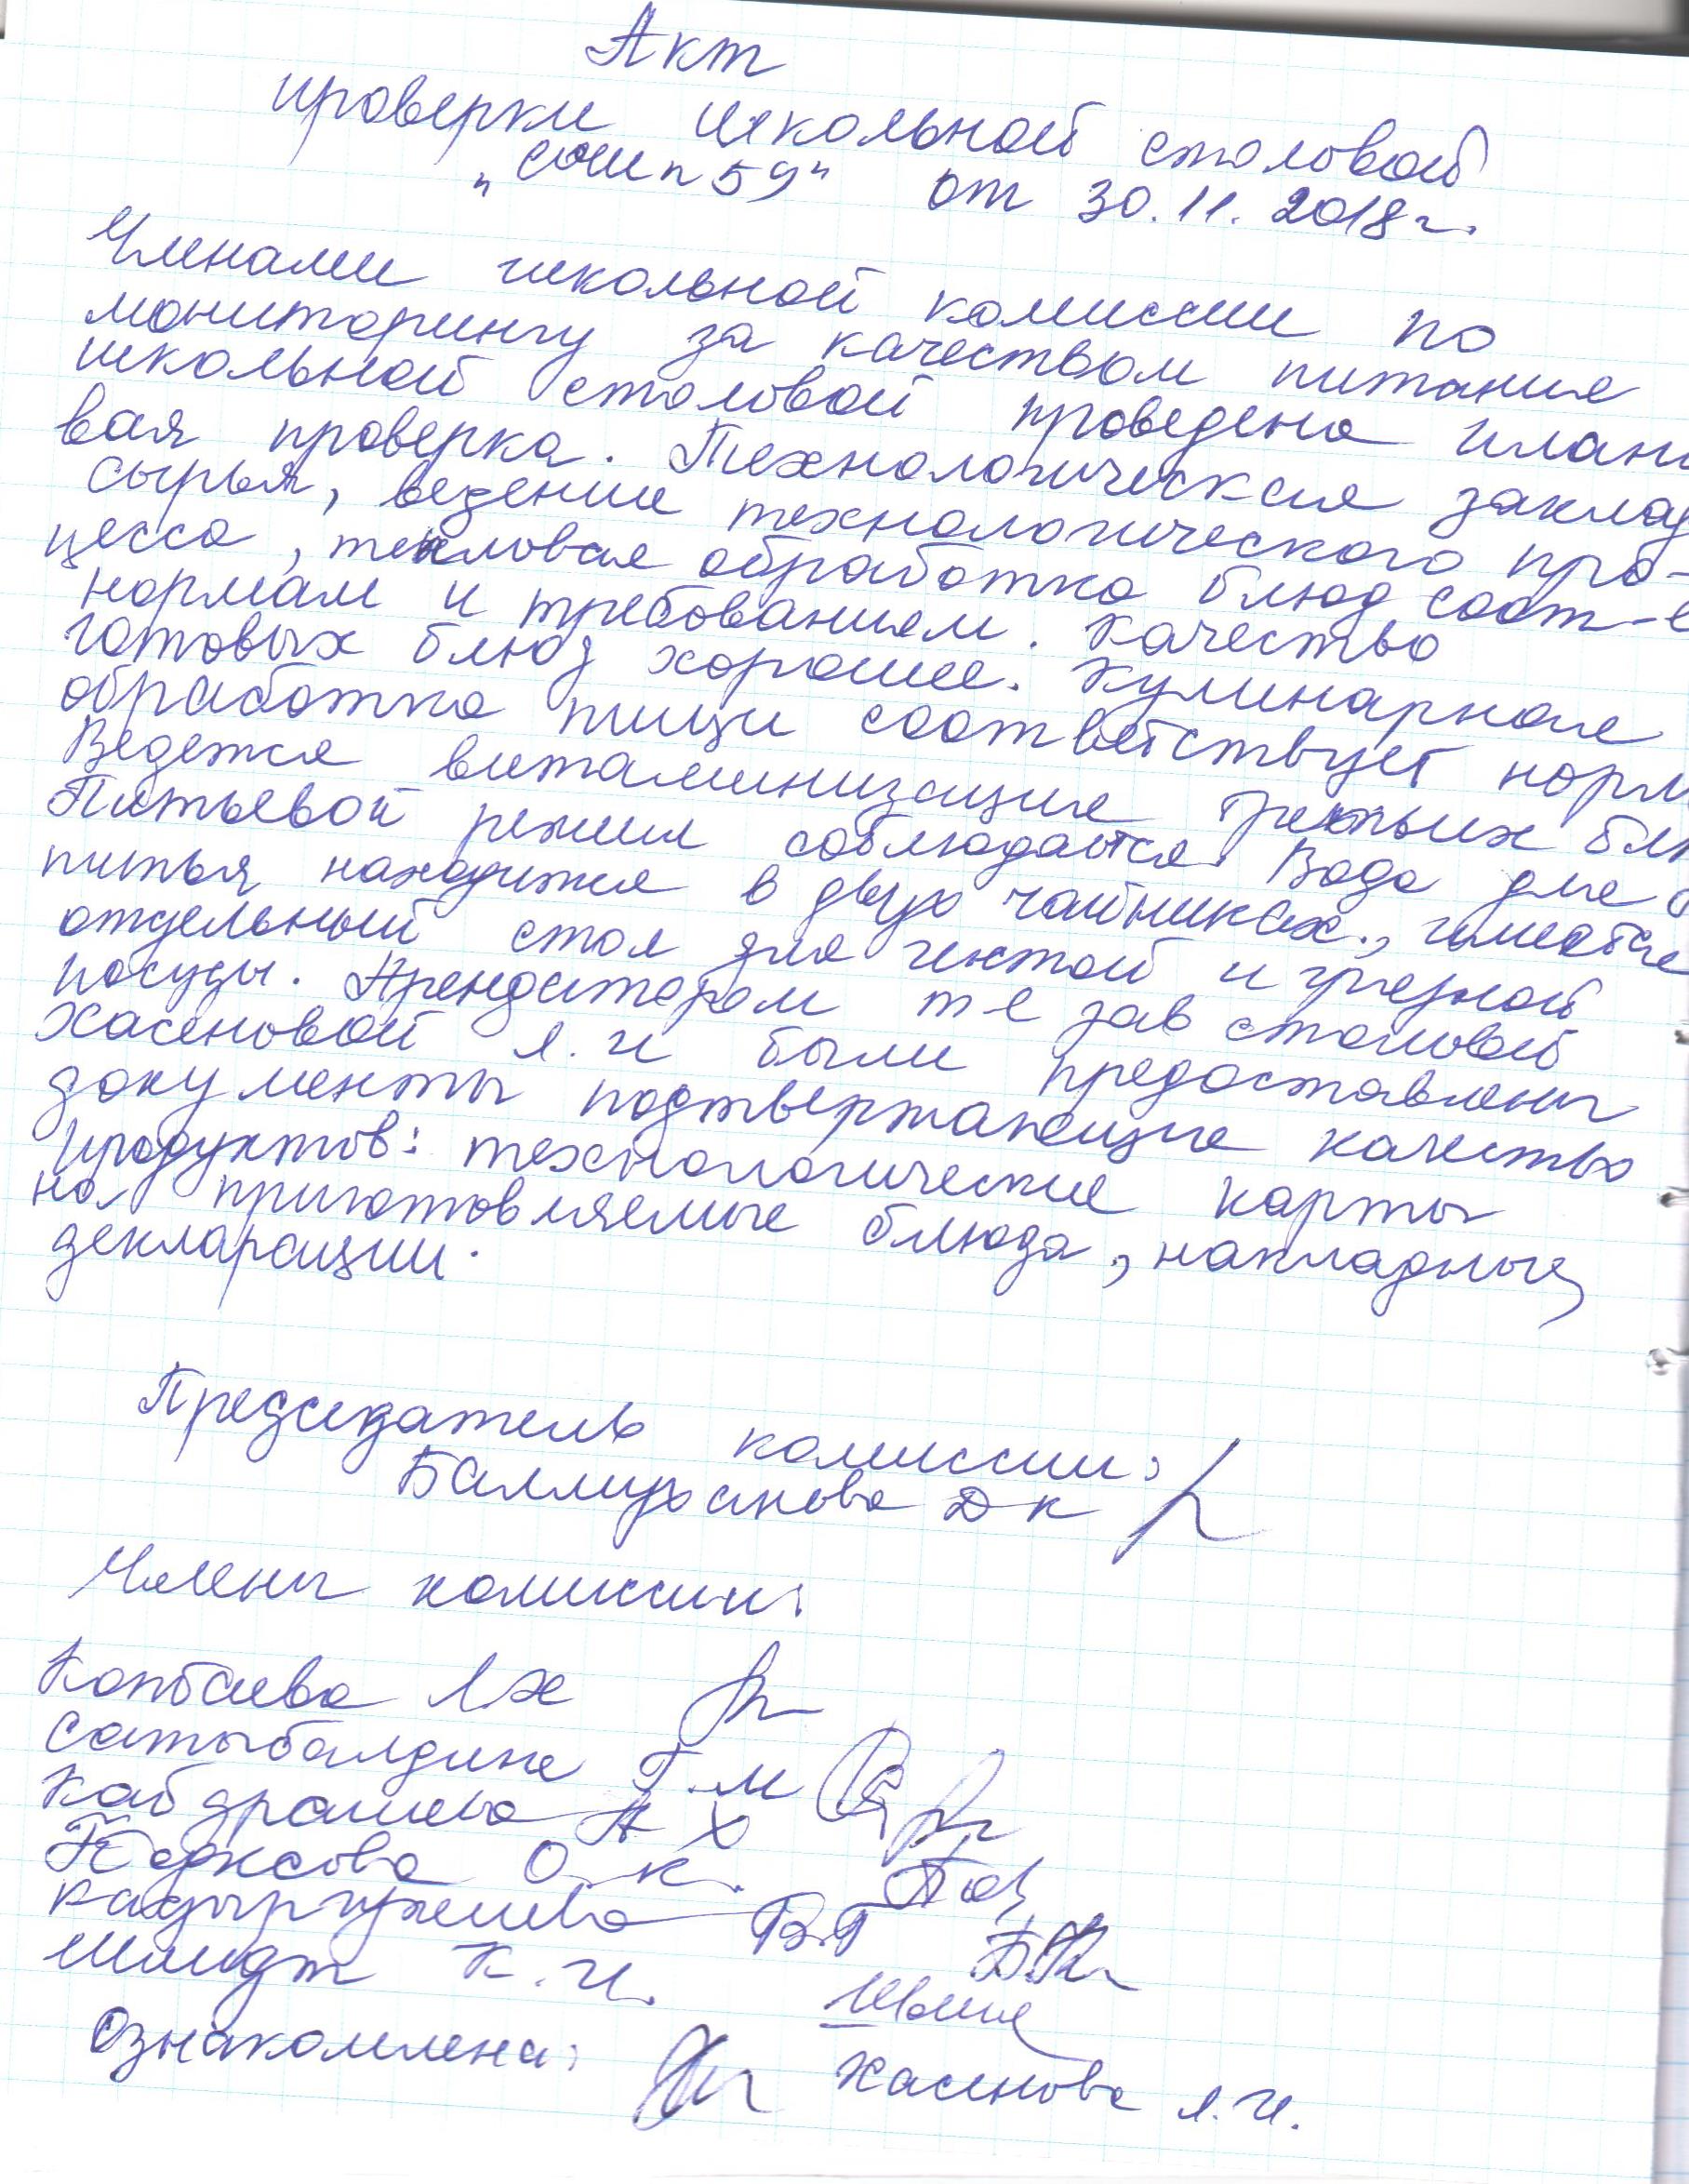 Акт
проверки школьной столовой
"сош n 59" от 30.11.2018г.
Членами школьной комиссии по
мониторингу за качеством питания
школьной столовой проведена плано
вая проверка. Технологическая заклад
сырья, ведение технологического про-
цесса, тепловая обработка блюд соот-е
нормам и требованием. Качество
готовых блюд хорошее. Кулинарная
обработка пищи соответствует норм
Ведется витаминизация третьих блю
Питьевой режим соблюдается. Вода для
питья находится в двух чайниках., имеется
отдельный стол для чистой и грязной
посуды. Арендатором т-е зав столовой
Хасеновой Я.И были предоставлены
документы подтвержающие качество
продуктов: технологические карты
на приготовляемые блюда, накладные,
декларации.
Председатель комиссии:
Балмуханова Д К
Члены комиссии:
Копбаева Л Х
Сатыбалдина Г.М
Кабдрашева А Х
О.К.
Кадыргужиева Б.Г
Шмидт К.И.
Ознакомлена: Хасенова Я.И.